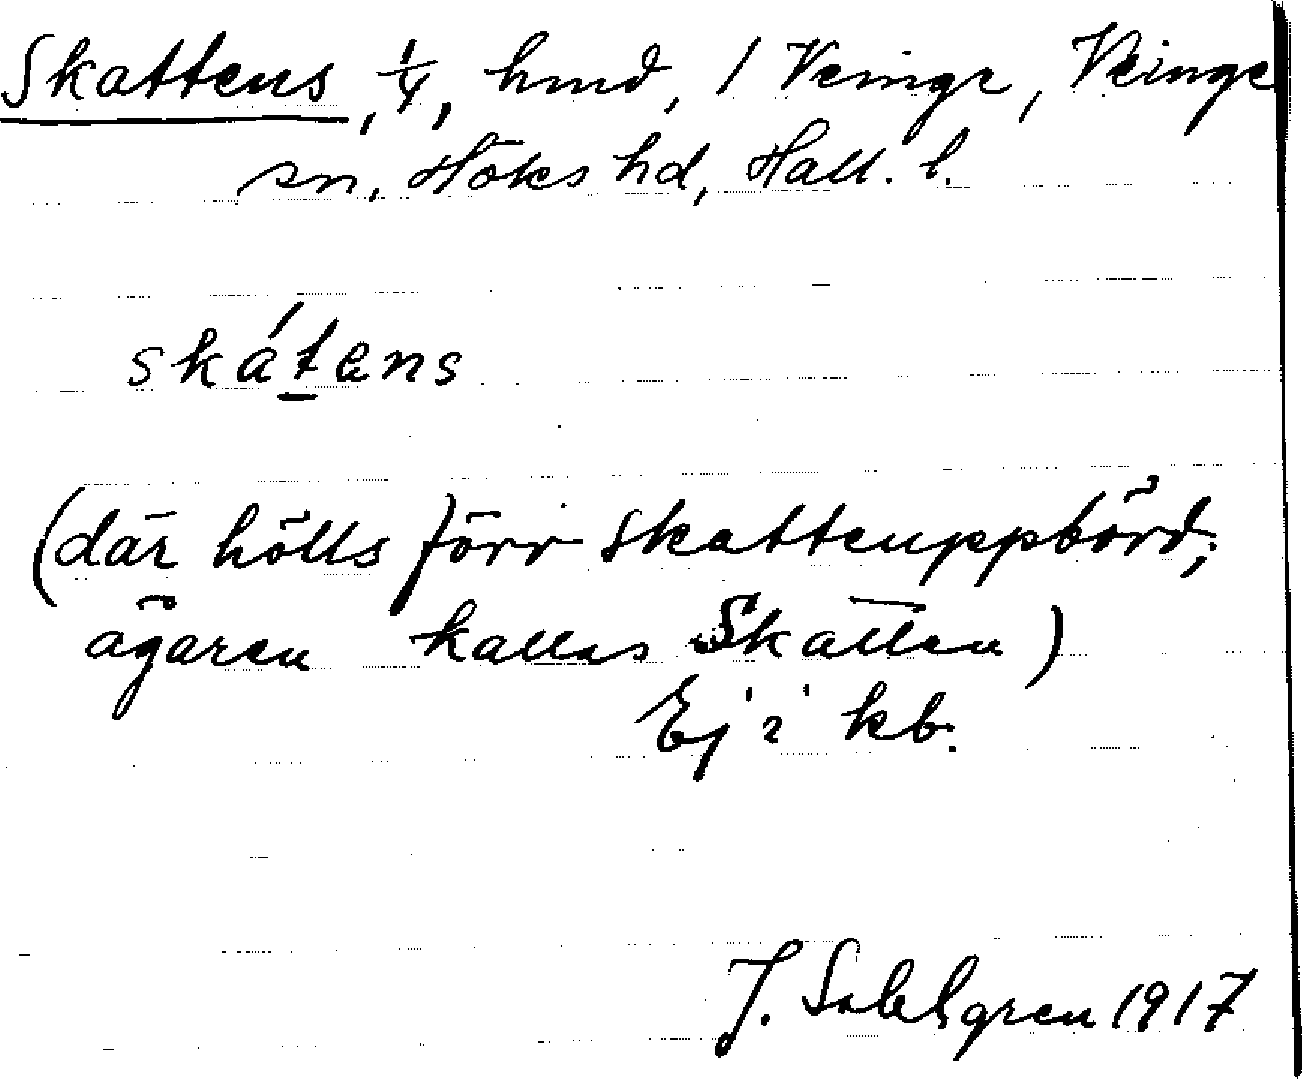 Skattens, 1/4, hmd, 1 Veinge, Veinge
sn, Höks hd, Hall. l.
skát̲ens
(där hölls förr skatteuppbörd,
ägaren kallas Skatten)
Ej i kb.
J. Sahlgren 1917